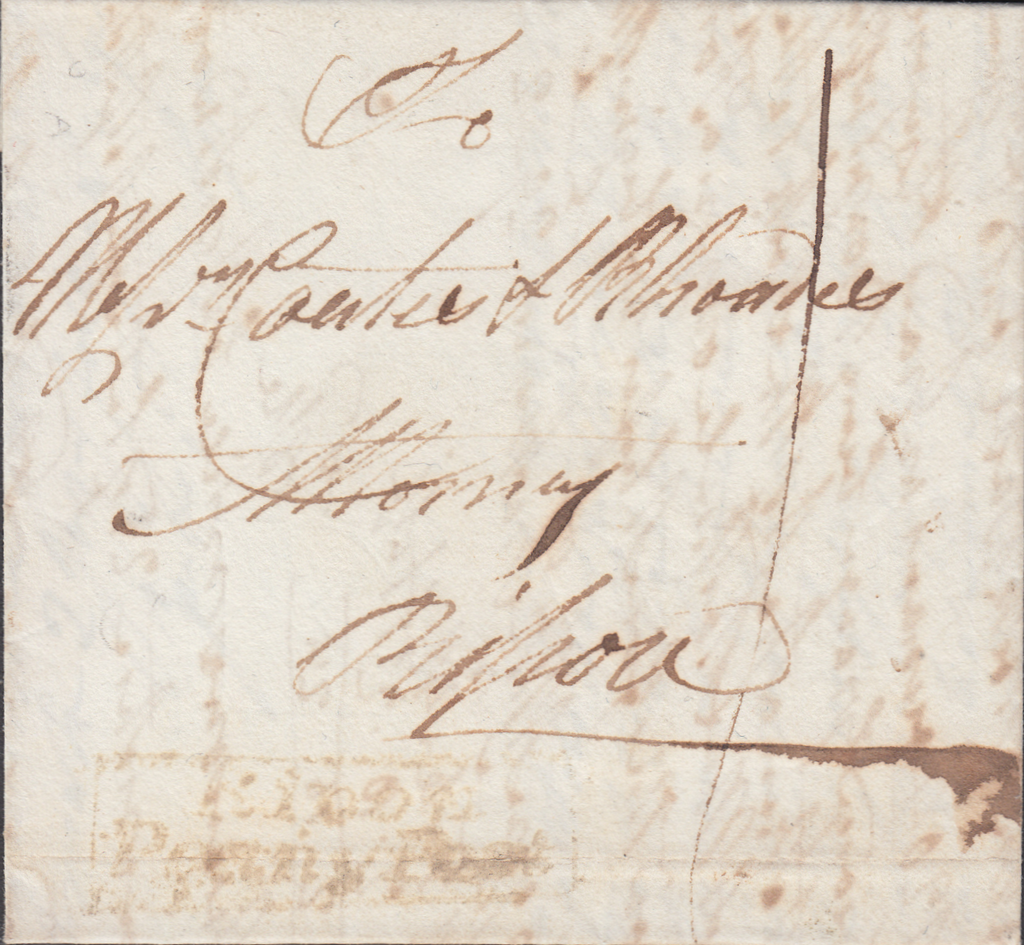 To
Messrs Coates & Rhoades
Attorney
Ripon
1
Penny Post